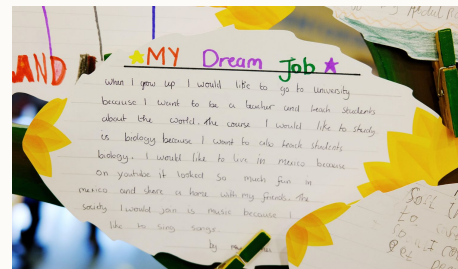 AND
MY Dream Job
when I grow up I would like to go to university
because I want to be a teacher and teach students
about the world. The course I would like to study
is biology because I want to also teach students
biology. I would like to live in mexico because
on youtube it looked so much fun in
mexico and share a home with my friends. The
society I would join is music because I
like to sing songs.
by